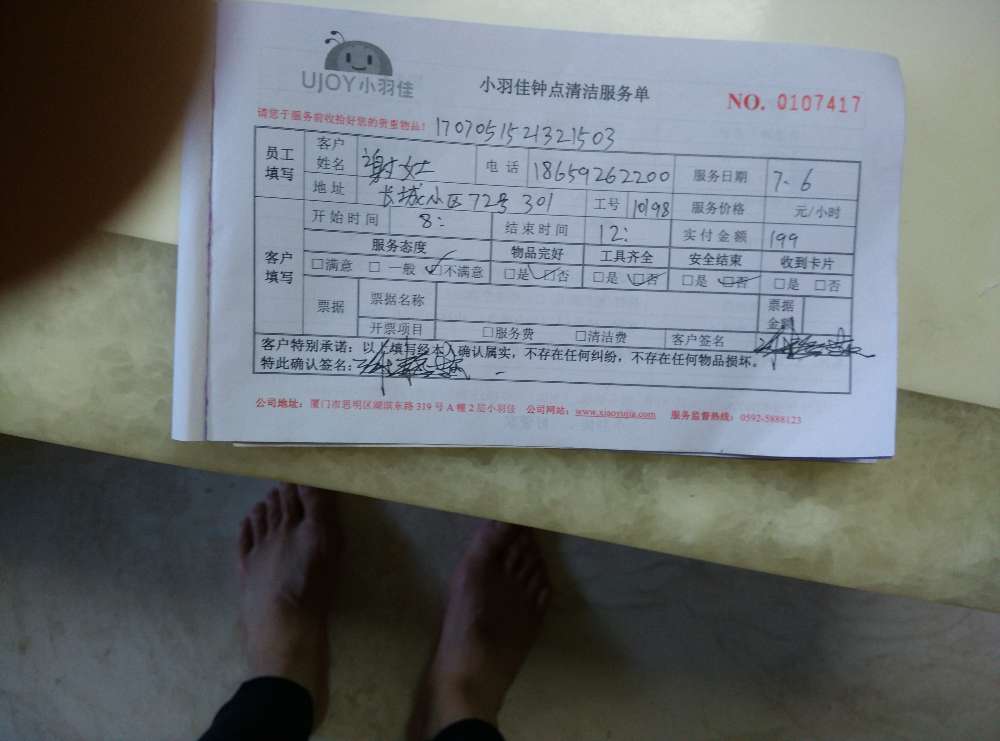 UJOY小羽佳
小羽佳钟点清洁服务单
NO. 0107417
请您于服务前收拾好您的贵重物品！ 1707051521321503
员工填写 客户姓名 谢女士 电话 18659262200 服务日期 7.6
地址 长城小区72号301 工号 10198 服务价格 元/小时
客户填写 开始时间 8: 结束时间 12: 实付金额 199
服务态度 物品完好 工具齐全 安全结束 收到卡片
□满意 □一般 □不满意 □是 □否 □是 □否 □是 □否 □是 □否
票据 票据名称 票据金额
开票项目 □服务费 □清洁费 客户签名
客户特别承诺：以上填写经本人确认属实，不存在任何纠纷，不存在任何物品损坏。
特此确认签名：
公司地址：厦门市思明区湖滨东路319号A幢2层小羽佳 公司网站：www.xiaoyujia.com 服务监督热线：0592-5888123